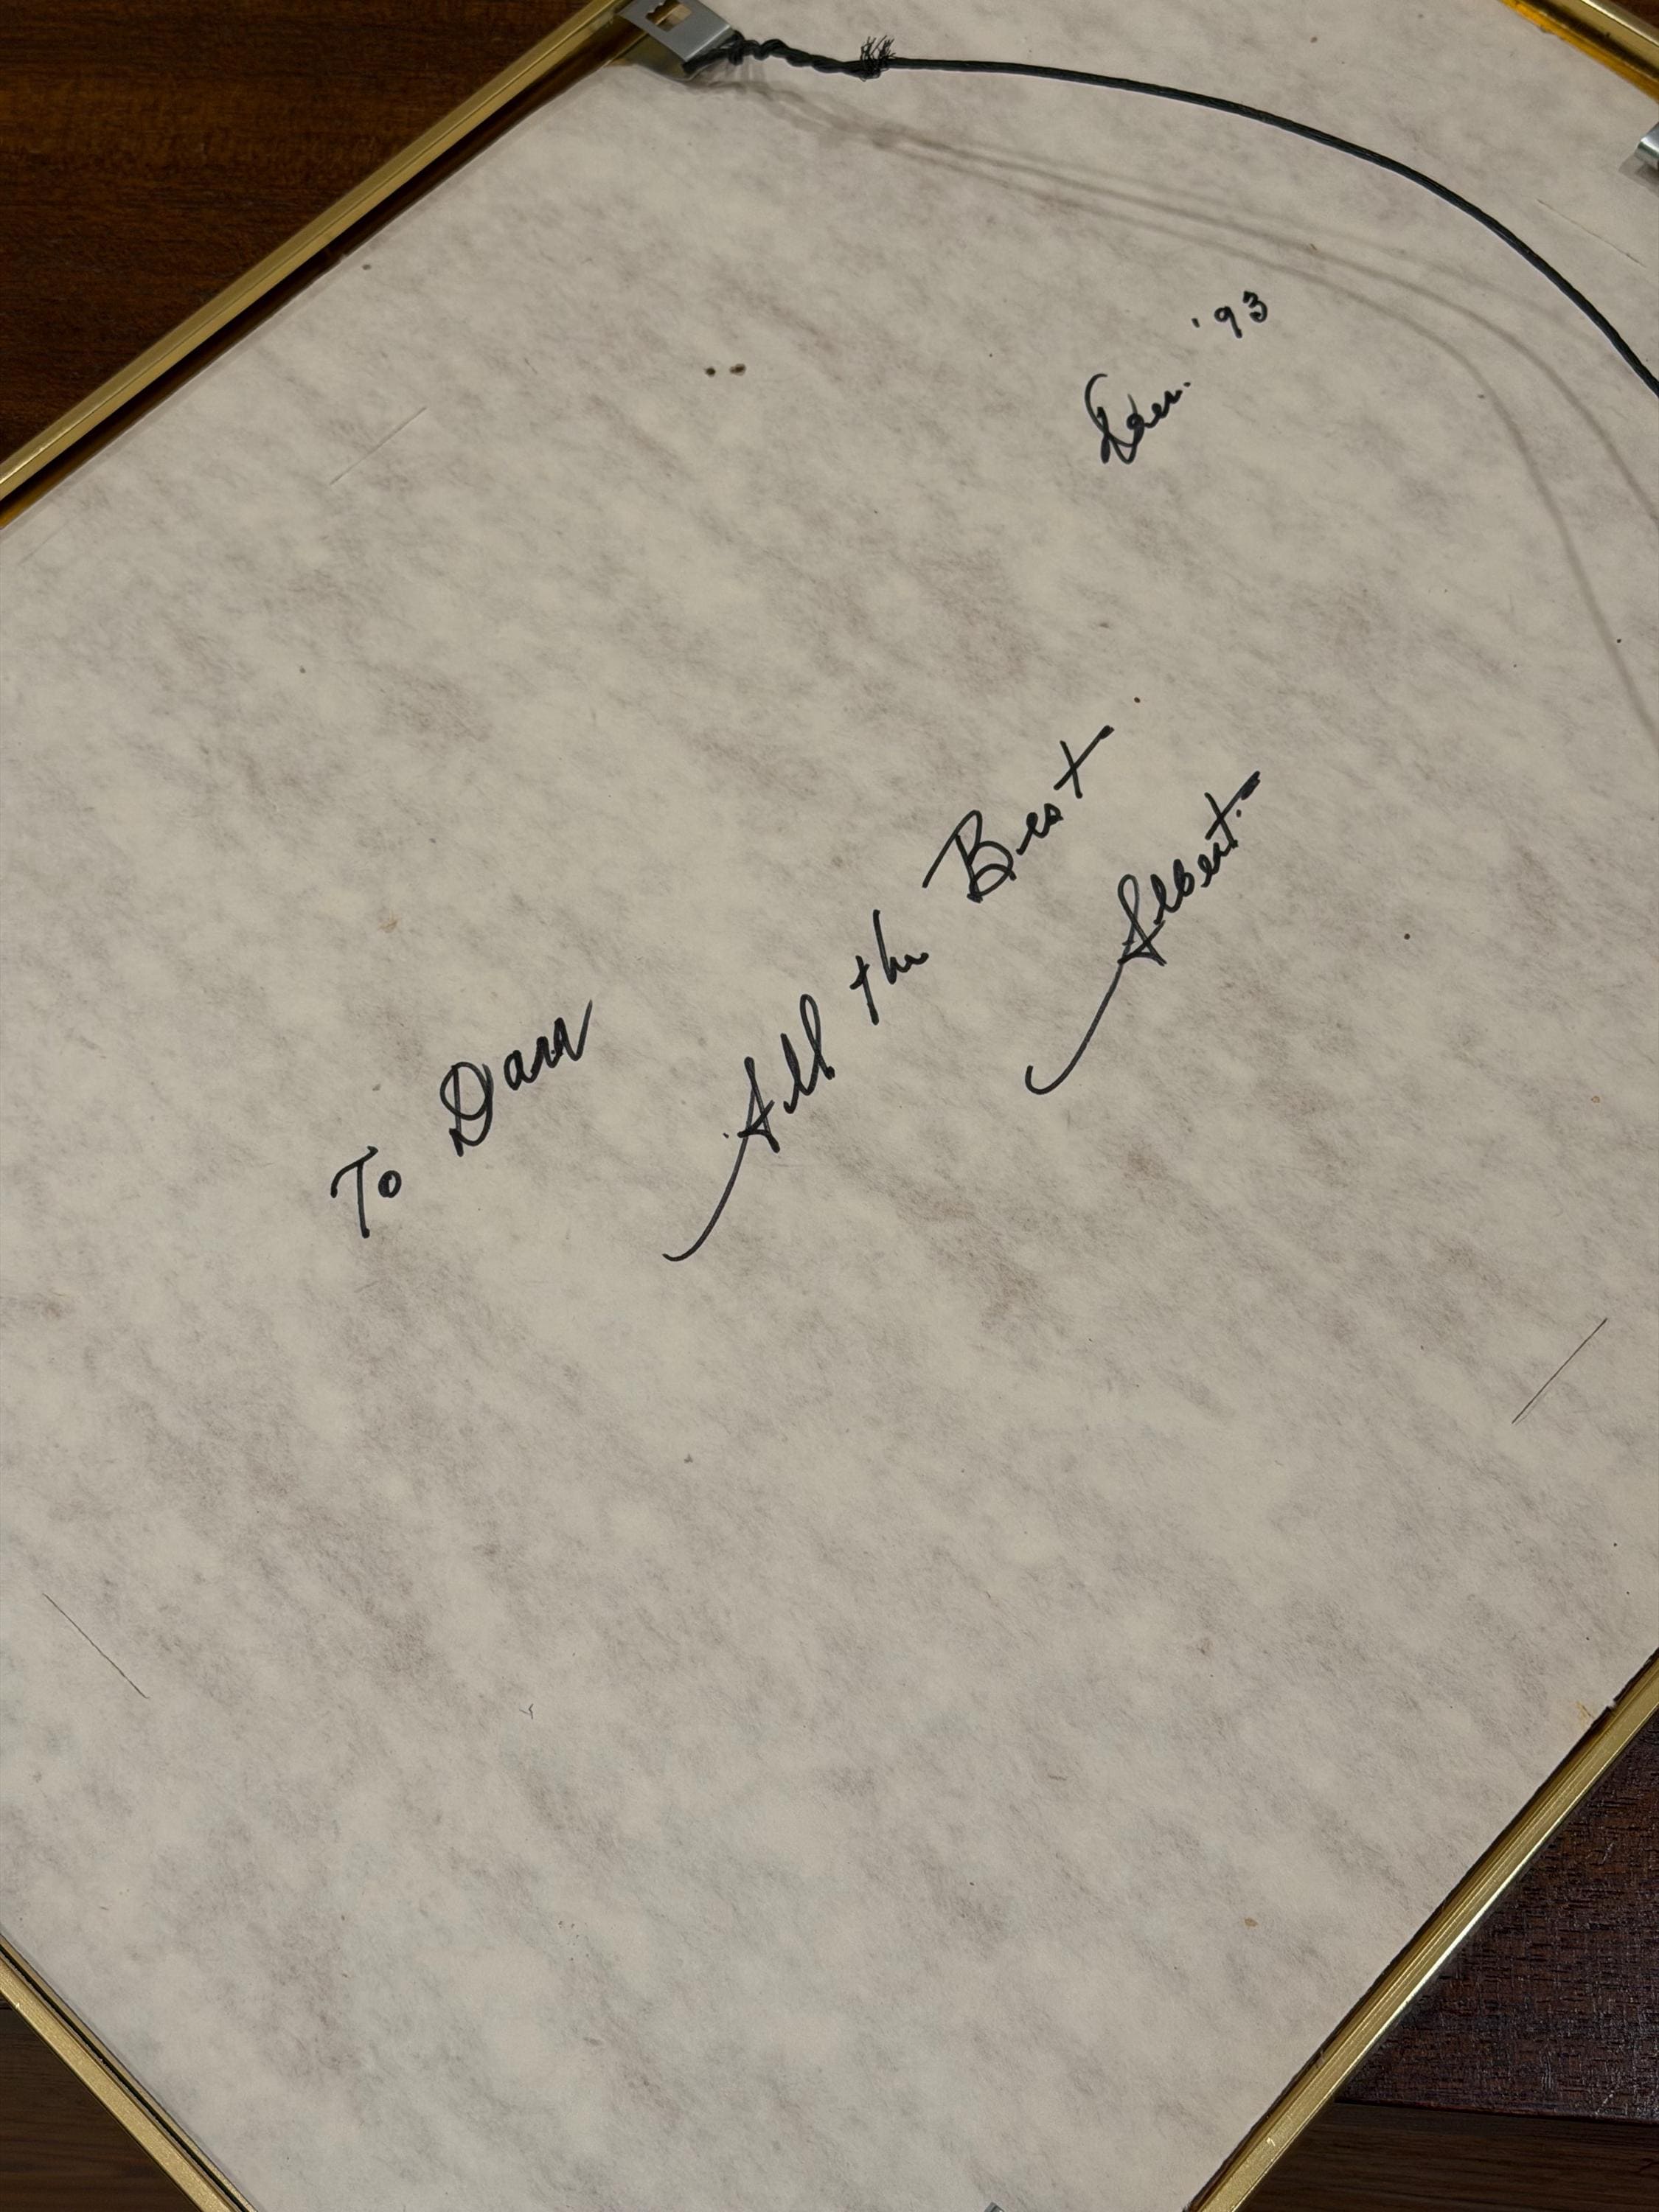 '93
To Dann
All the Best
Albert